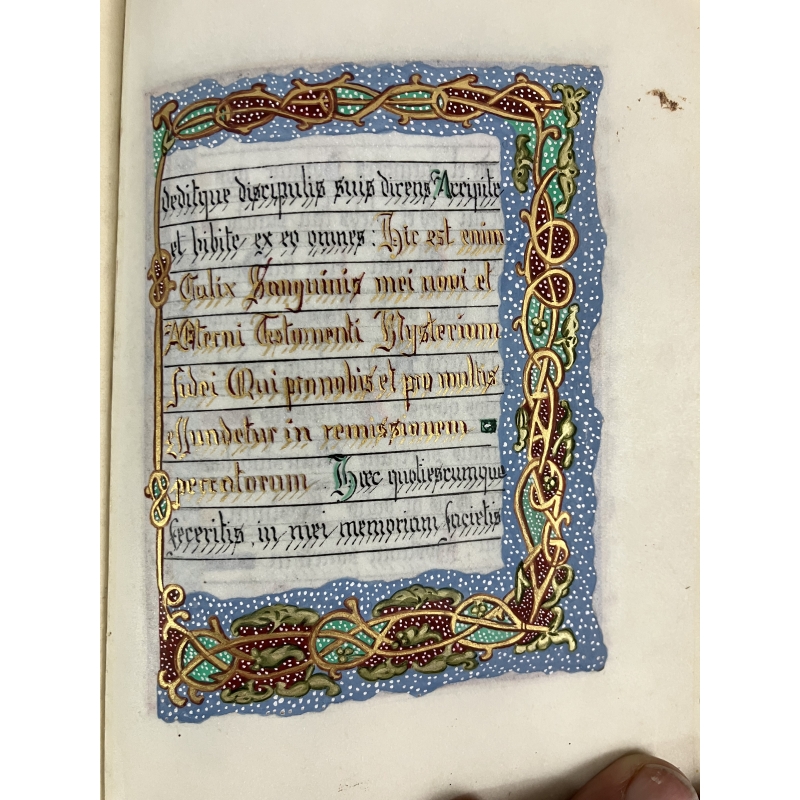 deditque discipulis suis dicens Accipite
et bibite ex eo omnes: Hic est enim
Calix Sanguinis mei novi et
Æterni Testamenti Mysterium
fidei Qui pro nobis et pro multis
effundetur in remissionem
peccatorum Hæc quotiescumque
feceritis, in mei memoriam facietis